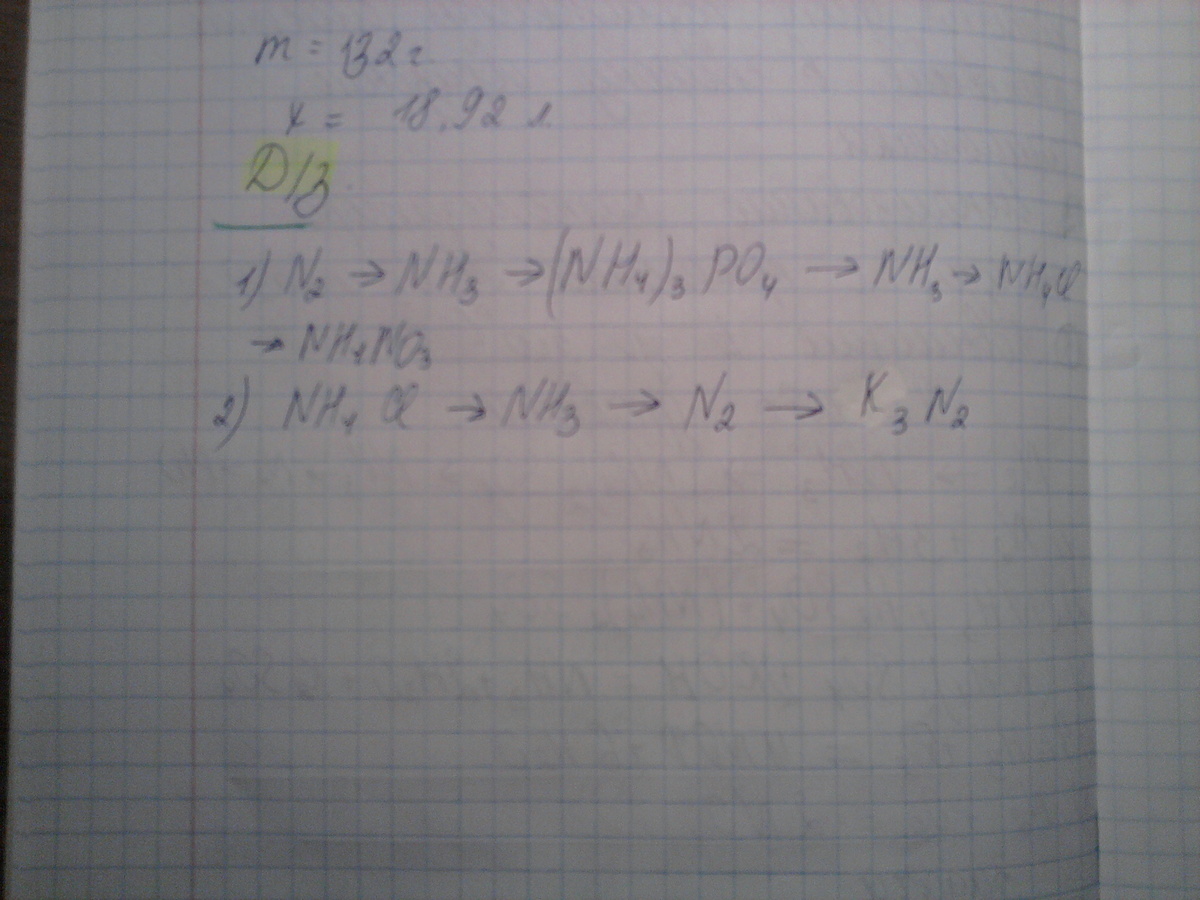 m = 132 г.
x = 18,92 л.
Д/з.
1) N₂ → NH₃ → (NH₄)₃ PO₄ → NH₃ → NH₄Cl
→ NH₄NO₃
2) NH₄ Cl → NH₃ → N₂ → K₃ N₂